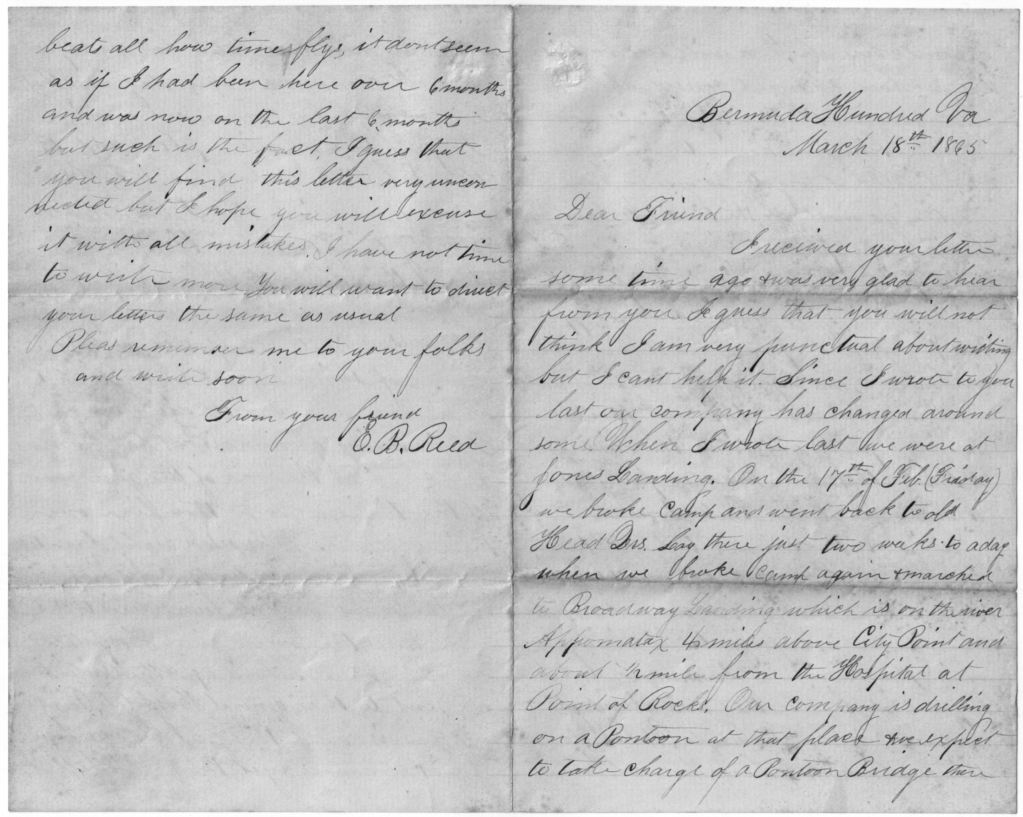 Bermuda Hundred Va
March 18th 1865
Dear Friend
I recieved your letter
some time ago & was very glad to hear
from you I guess that you will not
think I am very punctual about writing
but I cant help it. Since I wrote to you
last our company has changed around
some. When I wrote last we were at
Jones Landing. On the 17th of Feb. (Friday)
we broke camp and went back to old
Head Qrs. Lay there just two weeks to a day
when we broke camp again & marched
to Broadway Landing which is on the river
Appomatax 4 miles above City Point and
about 1/2 mile from the Hospital at
Point of Rocks. Our company is drilling
on a Pontoon at that place & we expect
to take charge of a Pontoon Bridge there
beats all how time flys, it dont seem
as if I had been here over 6 months
and was now on the last 6 months
but such is the fact. I guess that
you will find this letter very uncon
nected but I hope you will excuse
it with all mistakes. I have not time
to write more You will want to direct
your letters the same as usual
Pleas remember me to your folks
and write soon
From your friend
E. B. Reed